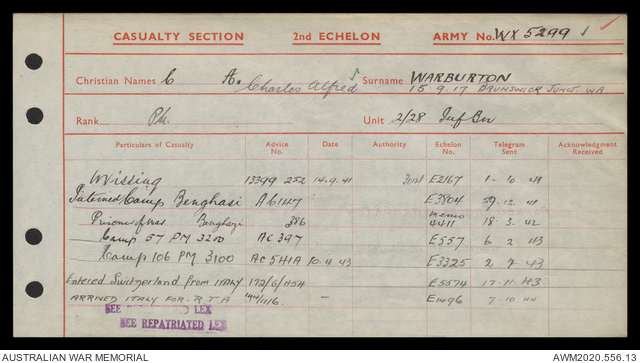 CASUALTY SECTION 2nd ECHELON ARMY No. WX 5299
Christian Names C A. Charles Alfred Surname WARBURTON
15.9.17 BRUNSWICK JUNCT. WA
Rank Pte. Unit 2/28 Inf Bn
Particulars of Casualty Advice No. Date Authority Echelon No. Telegram Sent Acknowledgment Received
Missing 13399 252 14-9-41 E2167 1-10-41
Interned Camp Benghasi A6147 E3804 29-12-41
Prisoner of War Benghazi 386 memo 4411 18-3-42
Camp 57 PM 3200 AC 397 E557 6 2 43
Camp 106 PM 3100 AC 541A 10-4 43 E3325 2 7 43
Entered Switzerland from ITALY 172/6/1454 E5574 17-11-43
ARRIVED ITALY FOR R.T.A 1116. — E1496 7-10-44
SEE LEX
SEE REPATRIATED LEX
AUSTRALIAN WAR MEMORIAL AWM2020.556.13